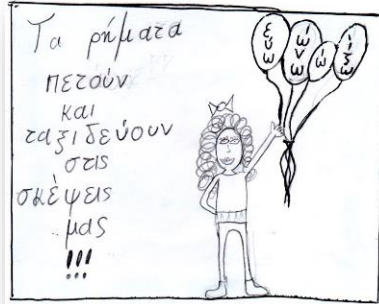 Τα ρήματα
πετούν
και
ταξιδεύουν
στις
σκέψεις
μας
!!!
εύω
ώνω
ώ
ίζω